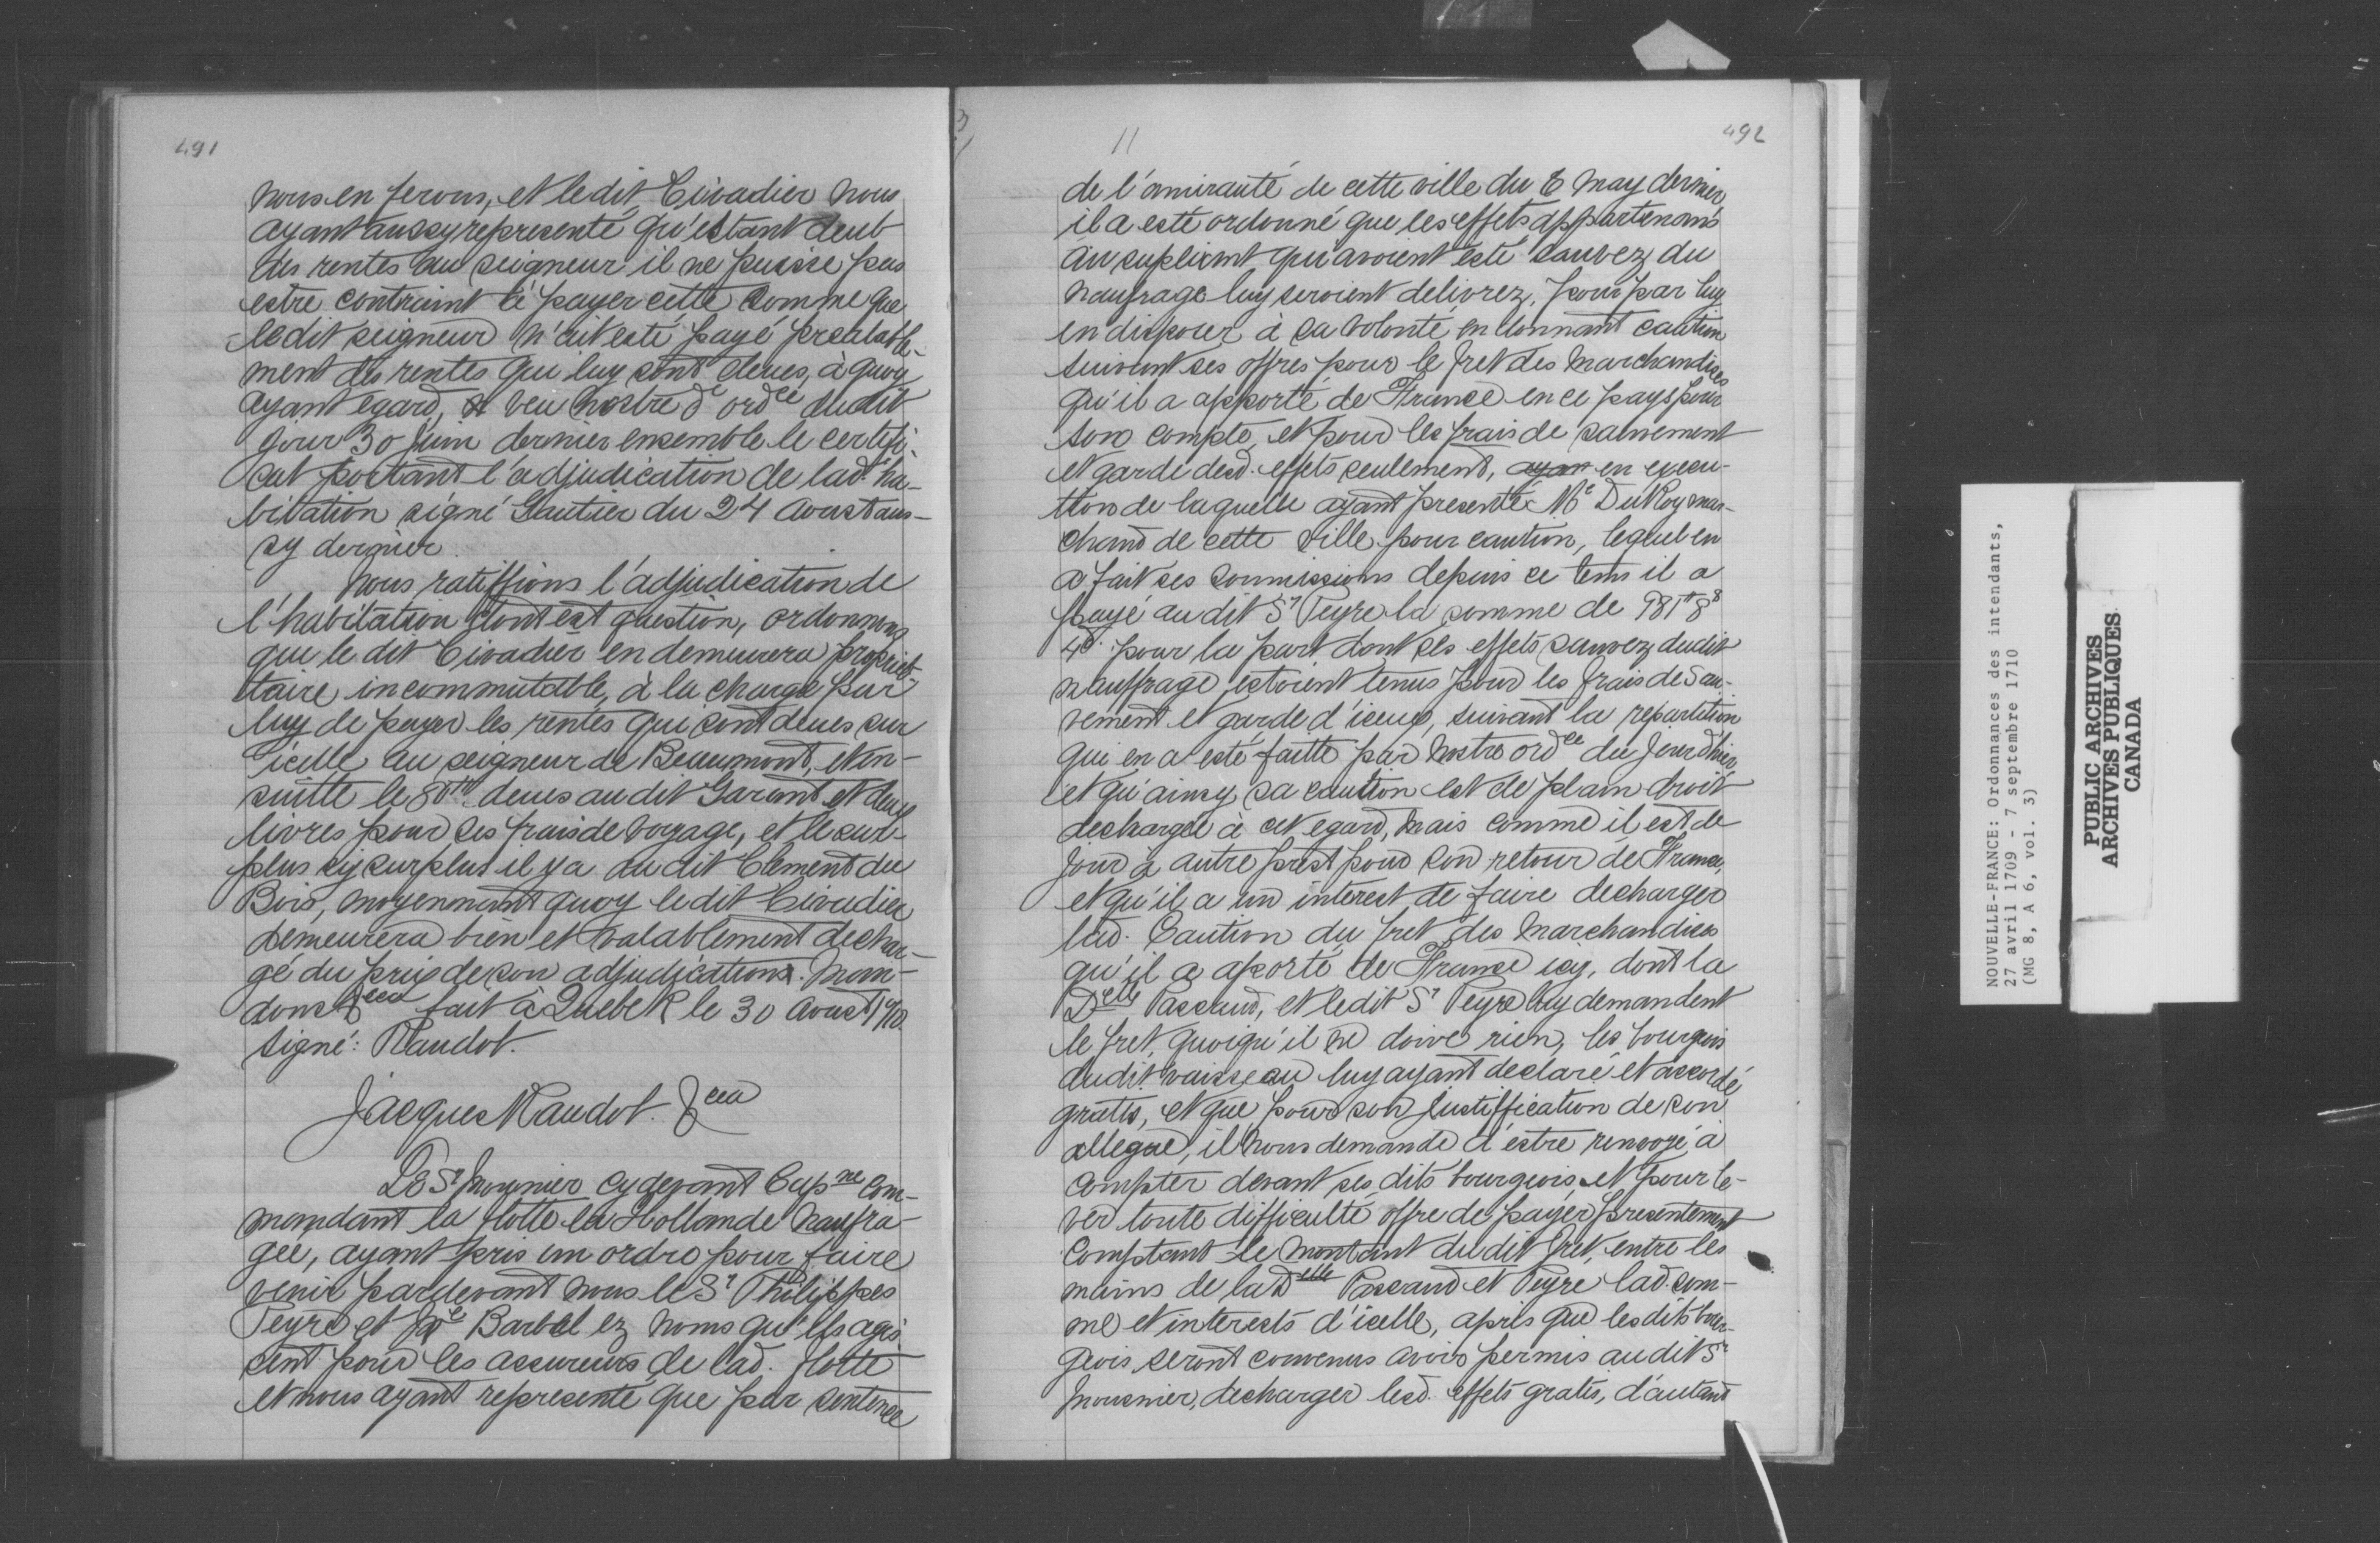 491
nous en ferons, et le dit Civadier nous
ayant aussy representé qu'estant deub
des rentes au seigneur il ne puisse pas
estre contraint de payer cette somme que
ledit seigneur n'eut esté payé prealable-
ment des rentes qui luy sont deues, à quoy
ayant egard, veu nostre de ordce dudit
jour 30 Juin dernier ensemble le certifi-
cat portant l'adjudication de lad. ha-
bitation signé Gautier du 24 Aoust aus-
sy dernier.
Nous ratiffions l'adjudication de
l'habitation dont est question, ordonnons
que le dit Civadier en demeurera proprié-
taire incommutable, à la charge par
luy de payer les rentes qui sont deues sur
icelle au seigneur de Beaumont, et en-
suitte le 80tt deues au dit Garant et deux
livres pour ses frais de voyage, et le sur-
plus sy surplus il y a au dit Clement du
Bois, moyennant quoy le dit Civadier
demeurera bien et valablement dechar-
gé du prix de son adjudication. Man-
dons &cca fait à Quebek le 30 Aoust 1710
signé: Raudot.
Jacques Raudot. &cca
Le Sr Mounier cydevant Capne com-
mandant la flotte la Hollande naufra-
gée, ayant pris un ordre pour faire
venir pardevant nous le Sr Philippes
Peyre et Me Barbel ez noms qu'ils agis-
sent pour les assureurs de lad. flotte
et nous ayant representé que par sentence
11
492
de l'amirauté de cette ville du 6 May dernier
il a esté ordonné que les effets appartenans
au supliant qui avoient esté sauvez du
naufrage luy seroient delivrez, pour par luy
en disposer à sa volonté en donnant caution
suivant ses offres pour le fret des marchandises
qu'il a apporté de France en ce pays pour
son compte, et pour les frais de sauvement
et garde desd. effets seulement, ayan en execu-
tion de laquelle ayant presenté Me DuRoy mar-
chand de cette ville pour caution, lequel en
a fait ses soumissions depuis ce tems il a
payé au dit Sr Peyre la somme de 981tt 8s
4d. pour la part dont ses effets sauvez dudit
nauffrage estoient tenus pour les frais de sau-
vement et garde d'iceux, suivant la repartition
qui en a esté faitte par nostre ordce du jour d'hier
et qu'ainsy sa caution est de plain droit
dechargée à cet egard, mais comme il est de
jour à autre prest pour son retour de France,
et qu'il a un interest de faire decharger
lad. Caution du fret des marchandises
qu'il a aporté de France icy, dont la
Delle Pascaud, et ledit Sr Peyre luy demandent
le fret, quoiqu'il ne doive rien, les bourgeois
dudit vaisseau luy ayant declaré et accordé
gratis, et que pour son justiffication de son
allegué, il nous demande d'estre renvoyé à
compter devant ses dits bourgeois, et pour le-
ver toute difficulté offre de payer presentement
comptant le montant dudit fret, entre les
mains de la Delle Pascaud et Peyre lad. som-
me et interests d'icelle, après que les dits bour-
geois seront convenus avoir permis au dit Sr
Mousnier, decharger lesd. effets gratis, d'autant
NOUVELLE-FRANCE: Ordonnances des intendants,
27 avril 1709 - 7 septembre 1710
(MG 8, A 6, vol. 3)
PUBLIC ARCHIVES
ARCHIVES PUBLIQUES
CANADA